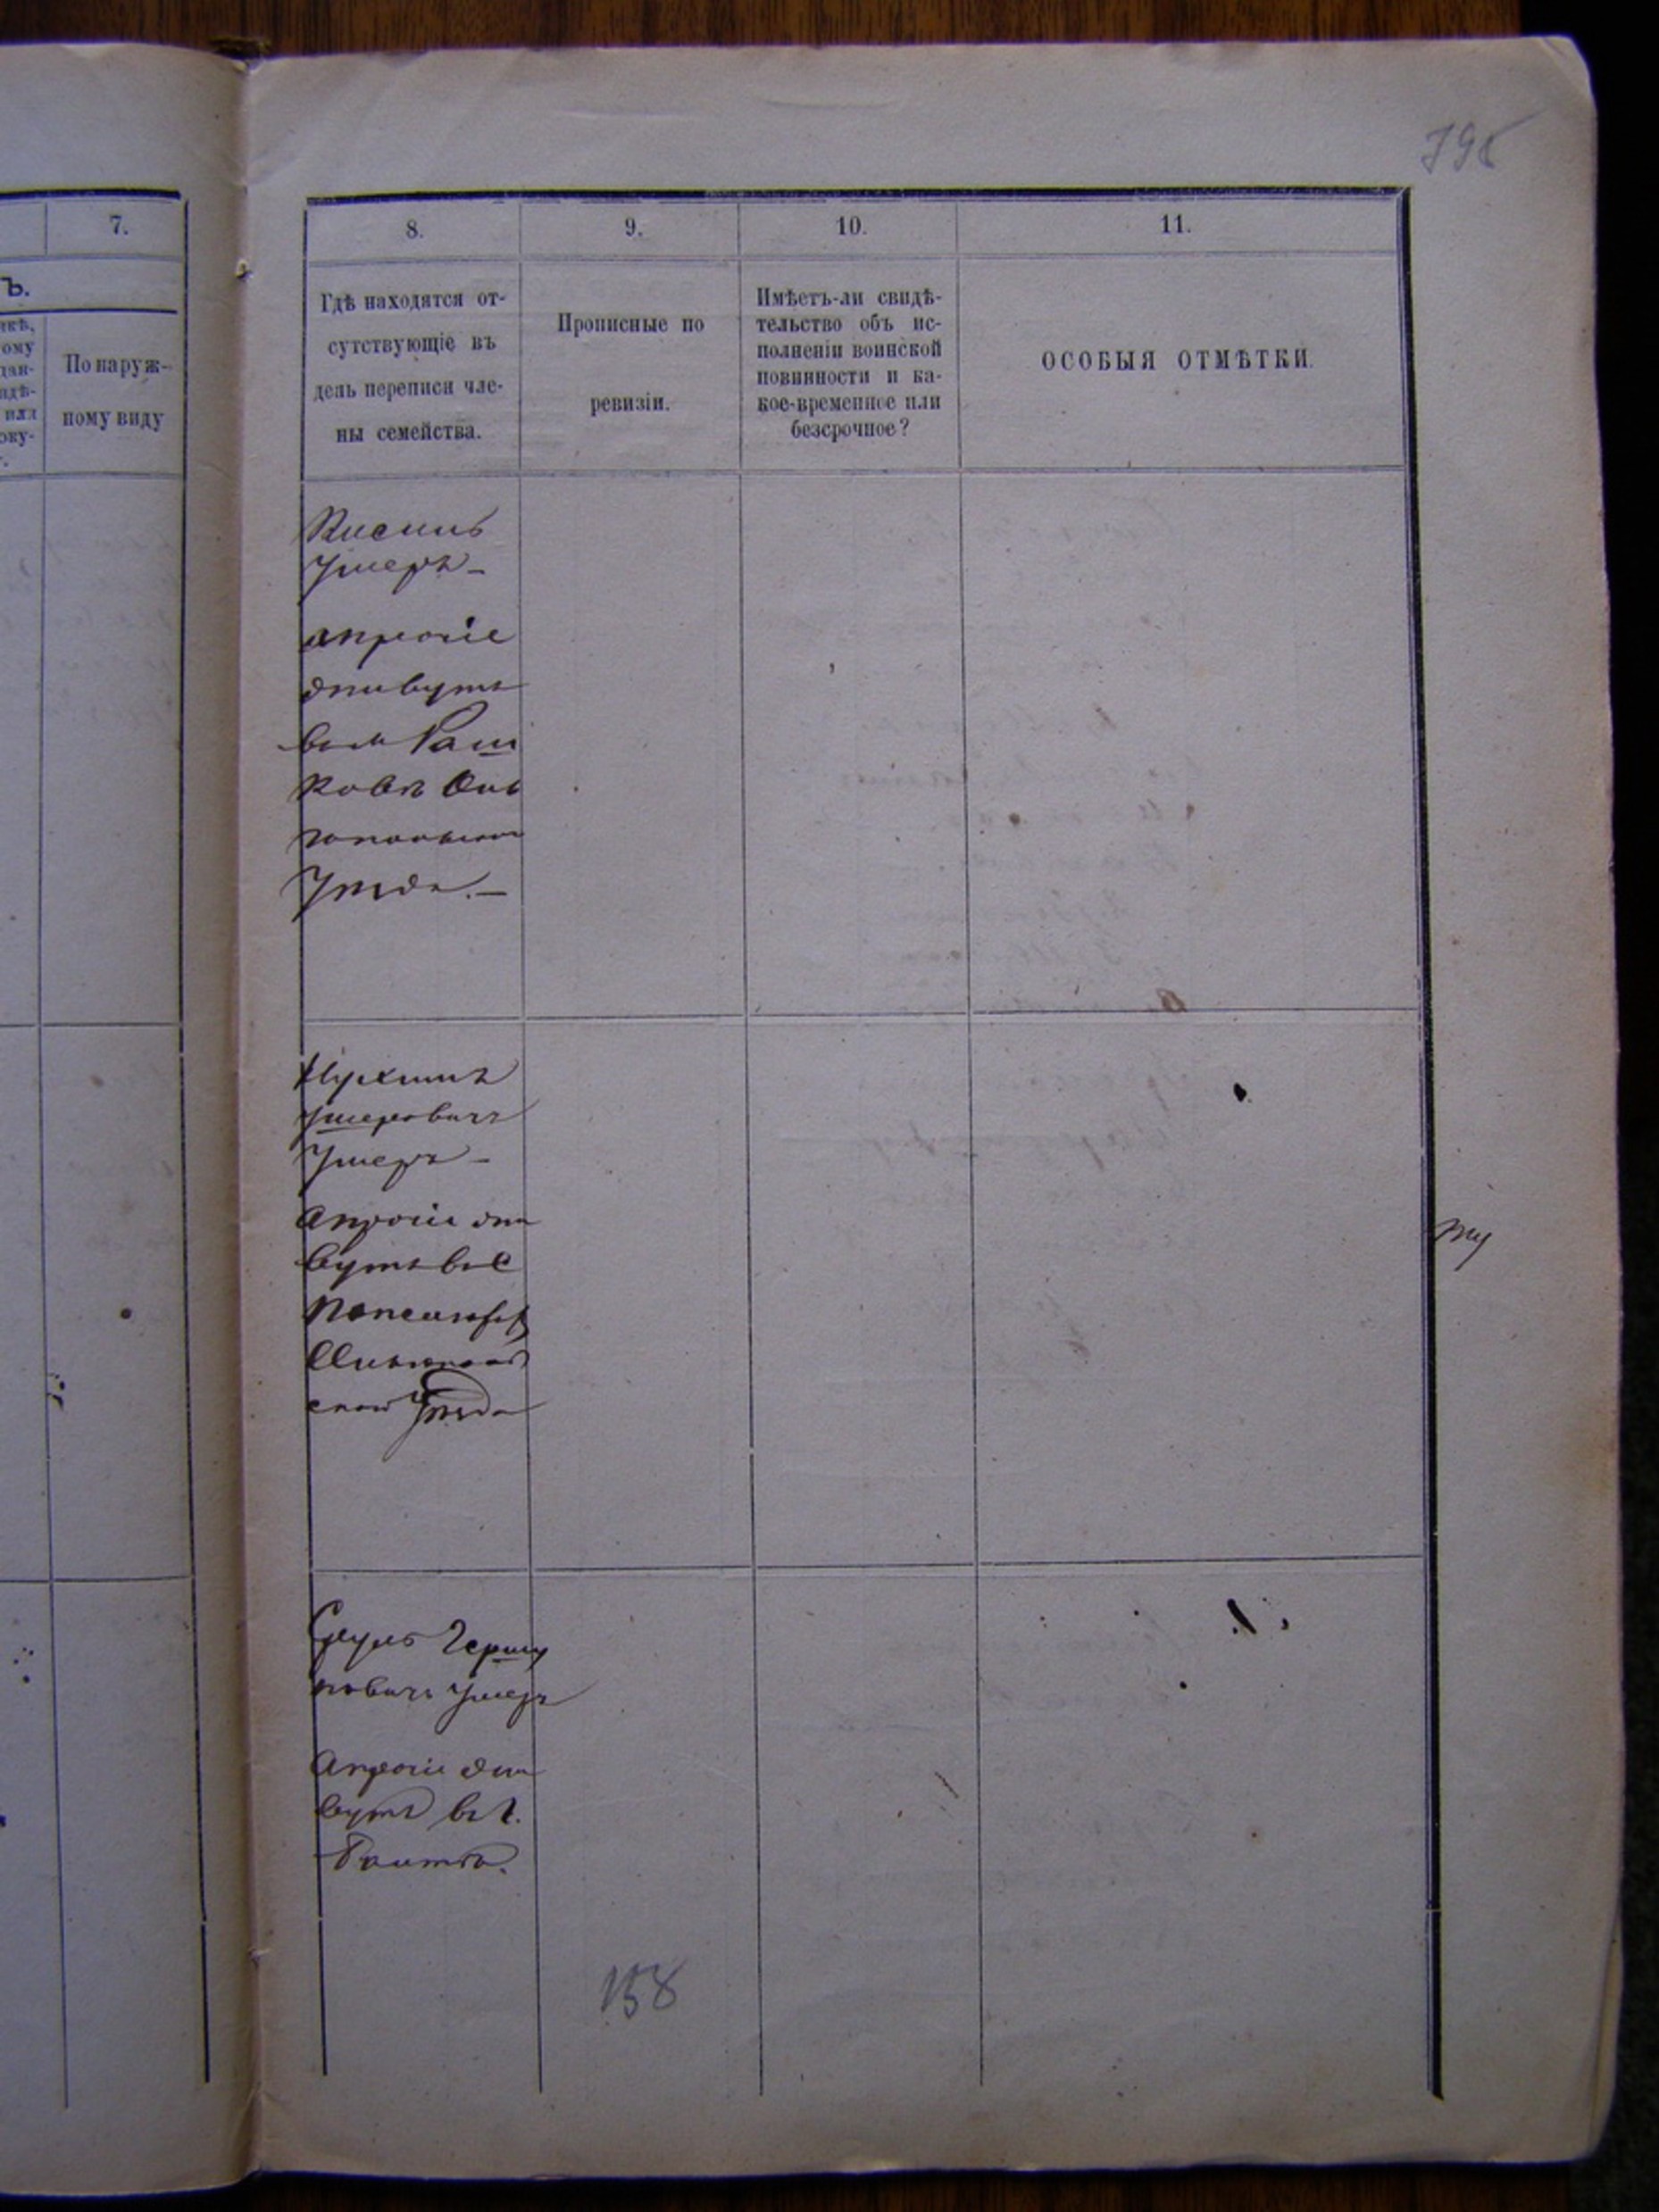 795
7.
Ъ.
По наруж-
ному виду
8.
9.
10.
11.
Гдѣ находятся от-
сутствующіе въ
день переписи чле-
ны семейства.
Прописные по
ревизіи.
Имѣетъ-ли свидѣ-
тельство объ ис-
полненіи воинской
повинности и ка-
кое-временное или
безсрочное?
ОСОБЫЯ ОТМѢТКИ.
Умеръ
а прочіе
живутъ
въ м. Раш
ковѣ Оль
гопольскаго
Уѣзда.
Умеръ
а прочіе жи
вутъ въ с
Ольгополь
скаго Уѣзда
Сруль Гершу
ковичъ умеръ
а прочіе жи
вутъ въ г.
Балтѣ.
158